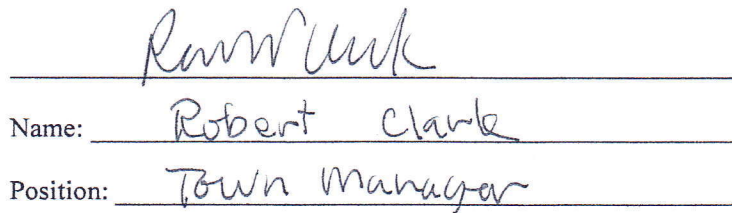 Name: Robert Clark
Position: Town Manager